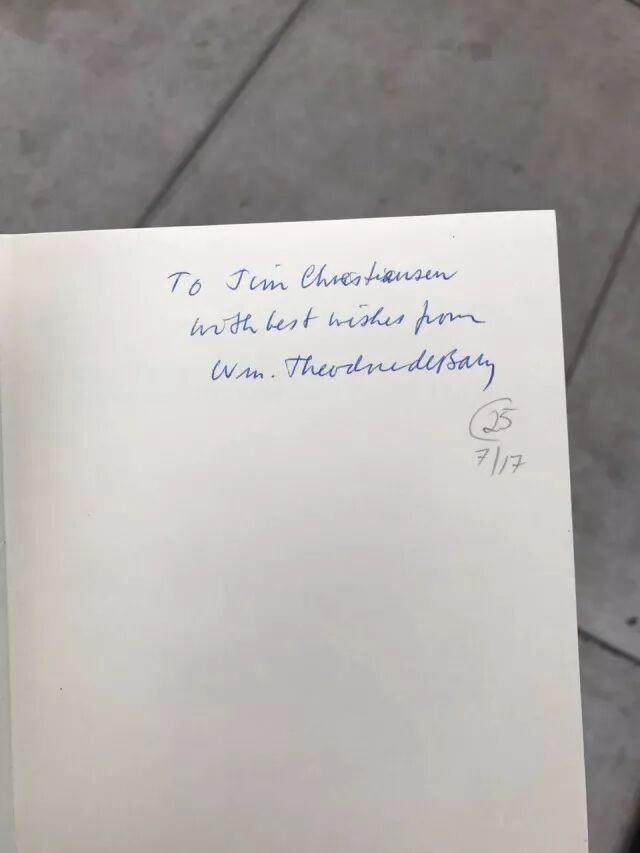 To Jim Christiansen
with best wishes from
Wm. Theodore de Bary
25
7/17